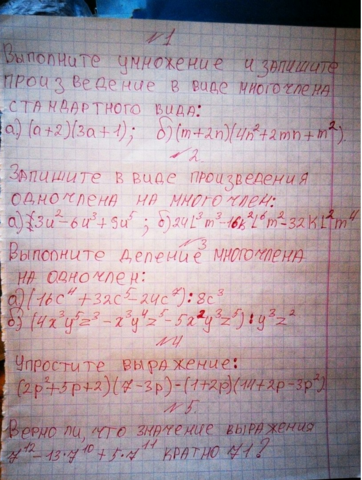 №1
Выполните умножение и запишите
произведение в виде многочлена
стандартного вида:
а) (a+2)(3a+1); б) (m+2n)(4n²+2mn+m²).
№2.
Запишите в виде произведения
одночлена на многочлен:
а) 3u²-6u³+9u⁵; б) 24l³m³-16k²l⁶m²-32kl²m⁴
№3
Выполните деление многочлена
на одночлен:
а) (16c⁴+32c⁵-24c³):8c³
б) (4x³y⁵z³-x³y⁴z⁵-5x²y³z⁵):y³z²
№4
Упростите выражение:
(2p²+5p+2)(7-3p)-(1+2p)(14+2p-3p²)
№5.
Верно ли, что значение выражения
7¹²-13·7¹⁰+5·7¹¹ кратно 71?